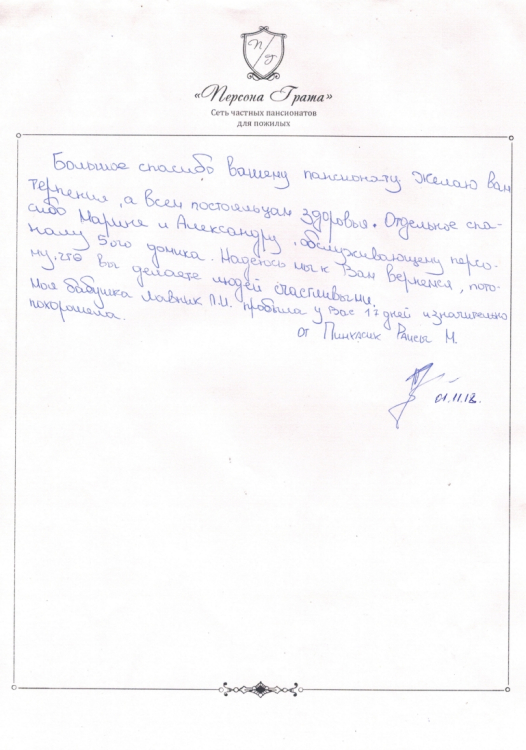 П Г
«Персона Грата»
Сеть частных пансионатов
для пожилых
Большое спасибо вашему пансионату Желаю вам
терпения, а всем постояльцам здоровья. Отдельное спа-
сибо Марине и Александру, обслуживающему персо-
налу 5ого домика. Надеюсь мы к Вам вернемся, пото-
му, что вы делаете людей счастливыми.
Моя бабушка Лавник П.И. пробыла у вас 17 дней и значительно
похорошела.
от Пинхасик Раисы М.
01.11.18.